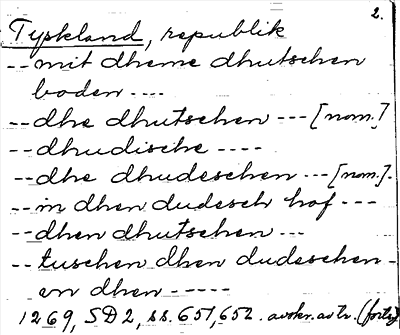 2.
Tyskland, republik
-- mit dheme dhutschen
boden ----
-- dhe dhutschen --- [nom.]
-- dhudische ----
-- dhe dhudeschen --- [nom.].
-- in dhen dudesch hof ---
-- dhen dhutschen ---
-- tuschen dhen dudeschen -
en dhen -----
1269, SD 2, ss. 651, 652. avskr. av tr. (forts)